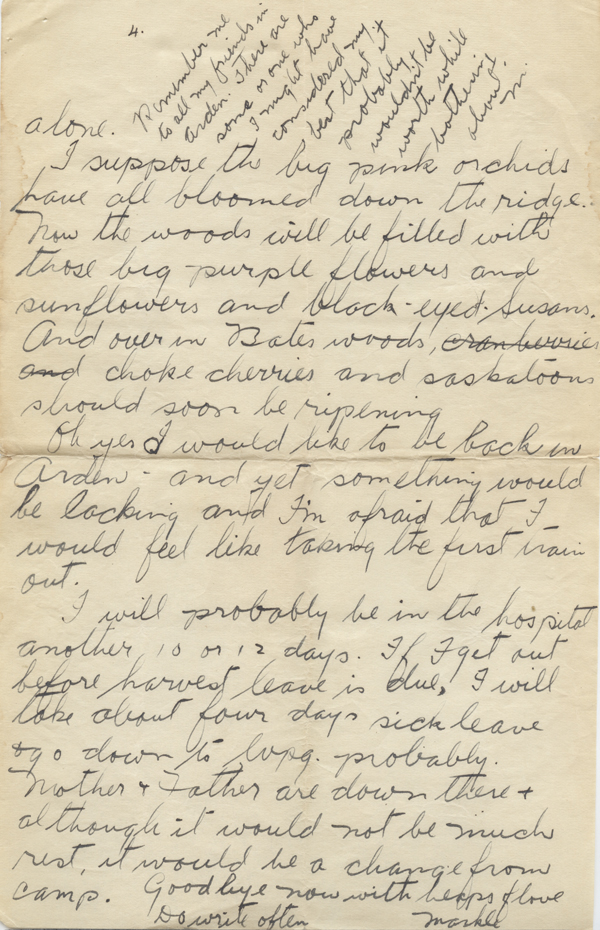 4.
Remember me
to all my friends in
Arden. There are
some or one who
I might have
considered my
best that it
probably
wouldn't be
worth while
bothering
about.
M.
alone.
I suppose the big pink orchids
have all bloomed down the ridge.
Now the woods will be filled with
those big purple flowers and
sunflowers and black-eyed-Susans.
And over in Bates woods, cranberries
and choke cherries and saskatoons
should soon be ripening
Oh yes I would like to be back in
Arden - and yet something would
be lacking and I'm afraid that I
would feel like taking the first train
out.
I will probably be in the hospital
another 10 or 12 days. If I get out
before harvest leave is due, I will
take about four days sick leave
& go down to Wpg. probably.
Mother & Father are down there &
although it would not be much
rest, it would be a change from
camp. Goodbye now with heaps of love
Do write often